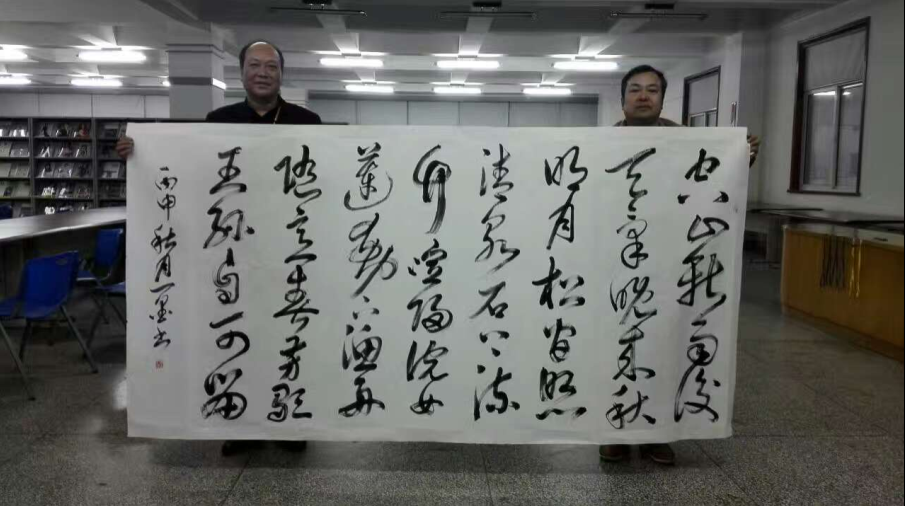 空山新雨後
天氣晚來秋
明月松間照
清泉石上流
竹喧歸浣女
蓮動下漁舟
隨意春芳歇
王孫自可留
丙申秋月一墨書